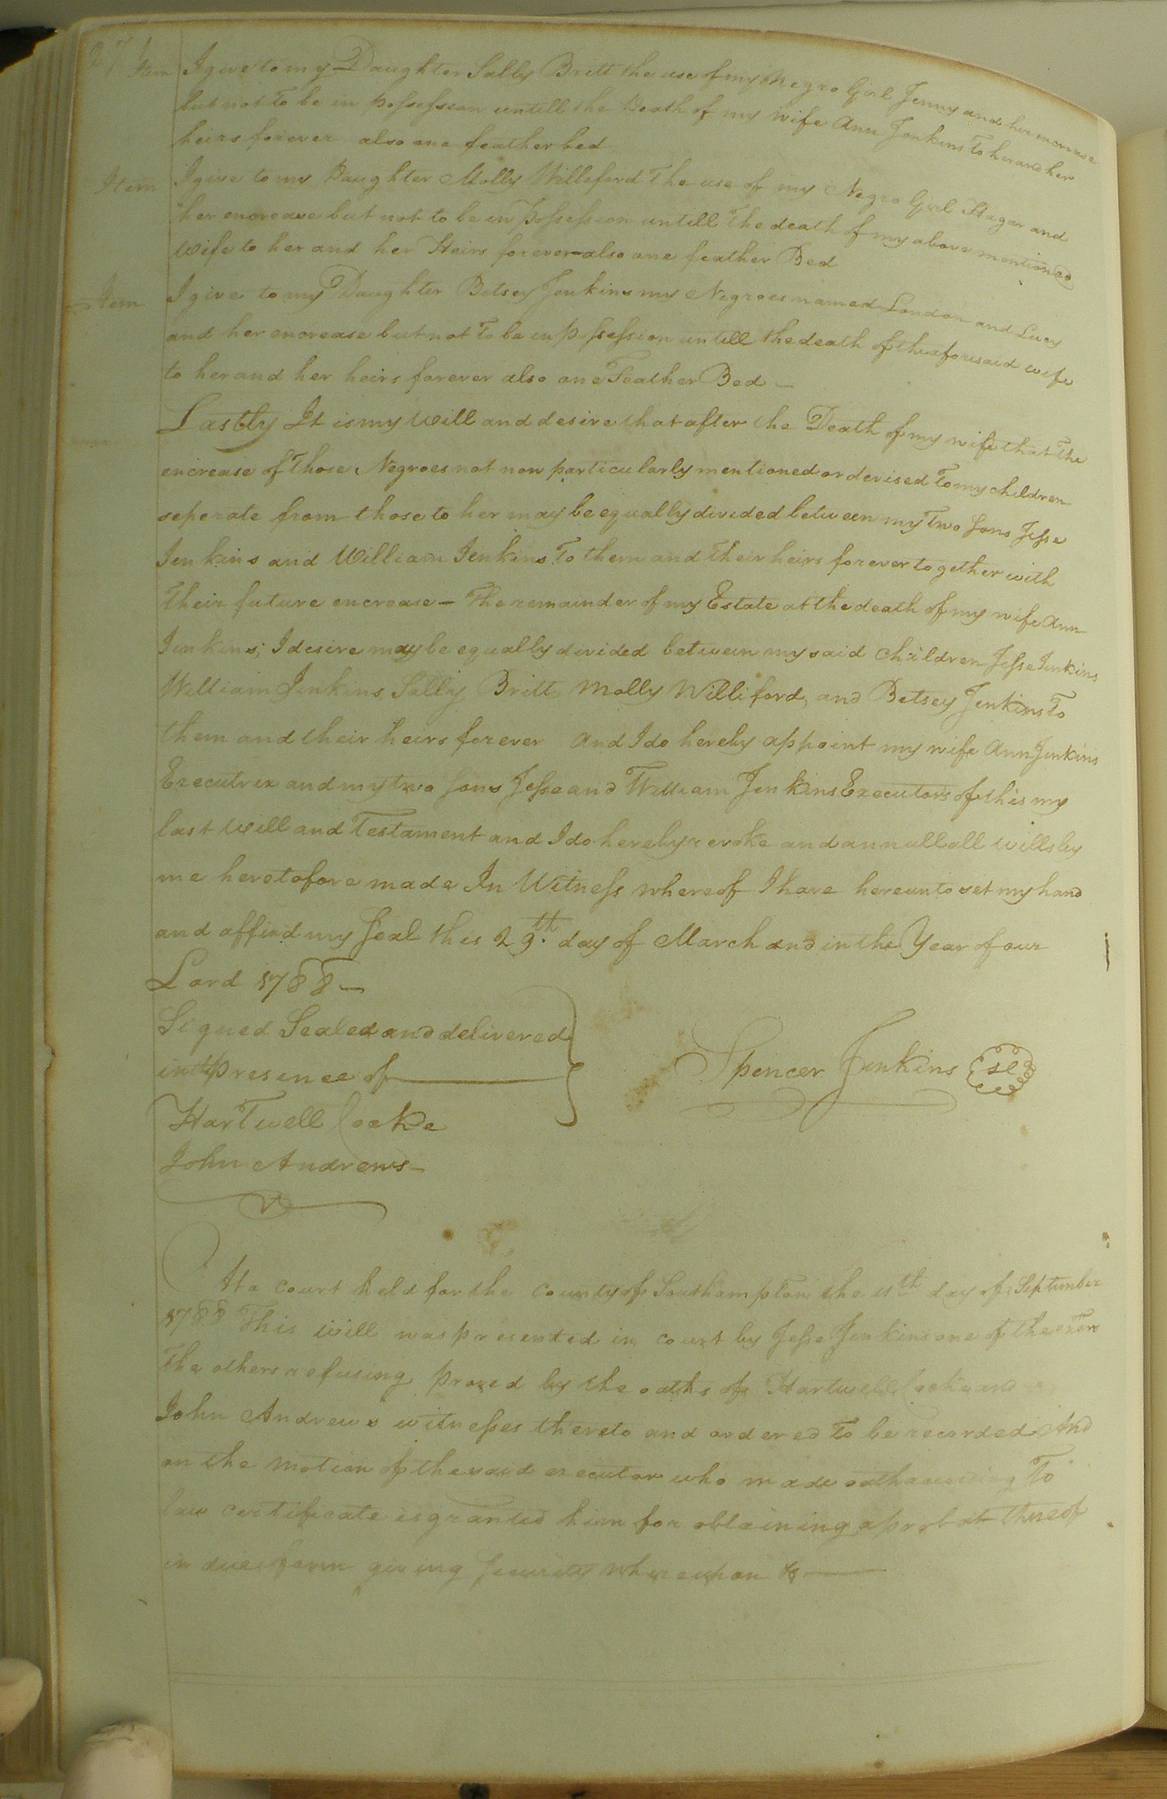 Item I give to my Daughter Sally Britt the use of my Negro Girl Jenny and her encrease
but not to be in possession untill the Death of my wife Ann Jenkins To her and her
heirs forever also one feather bed
Item I give to my Daughter Molly Williford The use of my Negro Girl Hagar and
her encrease but not to be in possession untill the death of my above mentioned
Wife to her and her Heirs forever also one feather Bed
Item I give to my Daughter Betsey Jenkins my Negroes named London and Lucy
and her encrease but not To be in possession untill the death of the aforesaid wife
to her and her heirs forever also one Feather Bed —
Lastly It is my Will and desire that after the Death of my wife that the
encrease of those Negroes not now particularly mentioned or devised To my children
seperate from those to her may be equally divided between my Two sons Jesse
Jenkins and William Jenkins To them and their heirs forever together with
Their future encrease — The remainder of my Estate at the death of my wife Ann
Jenkins; I desire may be equally divided between my said children Jesse Jenkins
William Jenkins Sally Britt Molly Williford, and Betsey Jenkins To
them and their heirs forever And I do hereby appoint my wife Ann Jenkins
Executrix and my two sons Jesse and William Jenkins Executors of this my
last Will and Testament and I do hereby revoke and annull all wills by
me heretofore made In Witness whereof I have hereunto set my hand
and affixd my seal this 29th. day of March and in the Year of our
Lord 1788 —
Signed Sealed and delivered
in the presence of
Spencer Jenkins Sl
Hartwell Cooke
John Andrews —
At a court held for the county of Southampton the 11th day of September
1788 This Will was presented in court by Jesse Jenkins one of the exors
The others refusing proved by the oaths of Hartwell Cooke and
John Andrews witnesses thereto and ordered To be recorded And
on the motion of the said executor who made oath according To
law certificate is granted him for obtaining a probat thereof
in due form giving security whereupon &